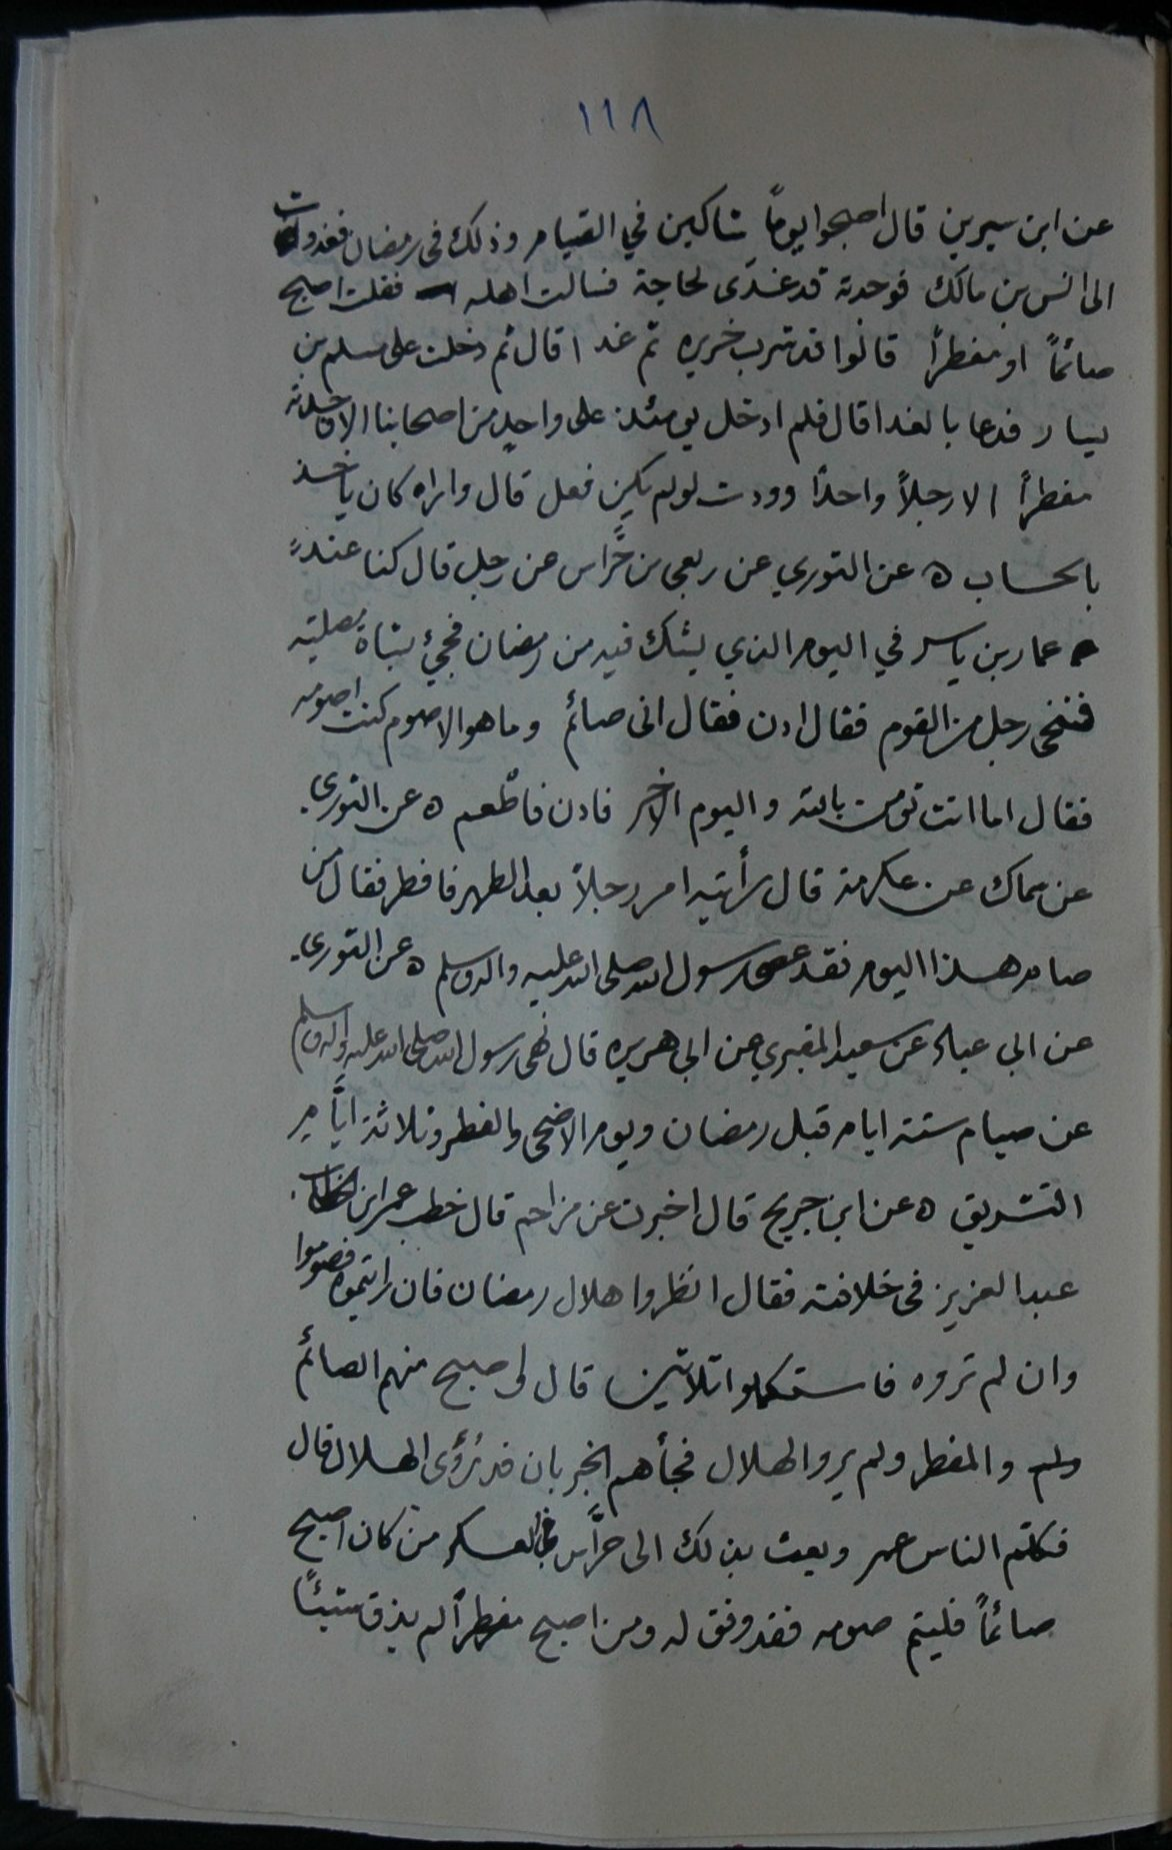 ١١٨
عن ابن سيرين قال اصبحوا يوماً شاكين في القيام وذلك في رمضان فغدوت
الى انس بن مالك فوجدته قد غدى لحاجة فسالت اهله فقلت اصبح
صائماً او مفطراً قالوا قد شرب خريره ثم غدا قال ثم دخلت على مسلم بن
يسار فدعا بالغدا قال فلم ادخل يومئذ على واحد من اصحابنا الا وجدته
مفطراً الا رجلاً واحداً وودت لو لم يكن فعل قال واراه كان ياخذ
بالحساب ه عن الثوري عن ربعي بن حَّراس عن رجل قال كنا عند
عمار بن ياسر في اليوم الذي يشك فيه من رمضان فجيُ بشاة مصليته
فتنحى رجل من القوم فقال ادن فقال انى صائم وما هو الا صوم كنت اصومه
فقال اما انت تومن بالله واليوم الاخر فادن فاطعم ه عن الثوري
عن سماك عن عكرمة قال رأيته امر رجلاً بعد الظهر فافطر فقال من
صام هذا اليوم فقد عصى رسول الله صلى الله عليه واله وسلم ه عن الثوري
عن ابي عباد عن سعيد المقبري عن ابي هريره قال نهى رسول الله صلى الله عليه واله وسلم
عن صيام ستة ايام قبل رمضان ويوم الاضحى والفطر وثلاثة اياَّم
التشريق ه عن ابن جريح قال اخبرت عن مزاحم قال خطب عمر ابن
عبد العزيز في خلافته فقال انظروا هلال رمضان فان رايتموه فصوموا
وان لم تروه فاستكملوا ثلاثين قال لى اصبح منهم الصائم
والمفطر ولم يروا الهلال فجأهم الخبر بان قد رُؤَى الهلال قال
فكلم الناس عمر وبعث بذلك الى حرَّاس في العسكر من كان اصبح
صائماً فليتم صومه فقد وفق له ومن اصبح مفطراً لم يذق شيئاً